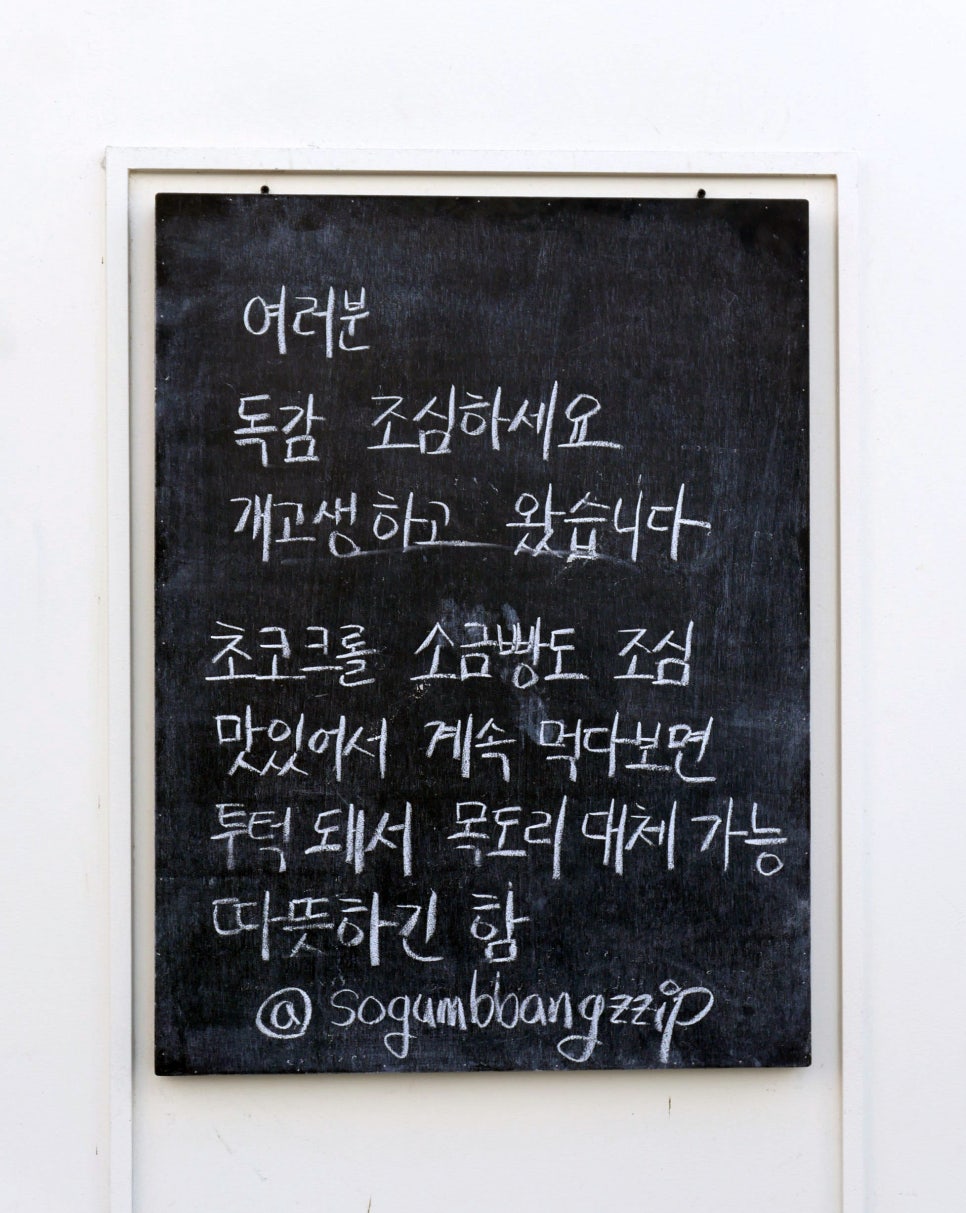 여러분
독감 조심하세요
개고생하고 왔습니다
초코크롤 소금빵도 조심
맛있어서 계속 먹다보면
투턱 돼서 목도리 대체 가능
따뜻하긴 함
@sogumbbangzzip